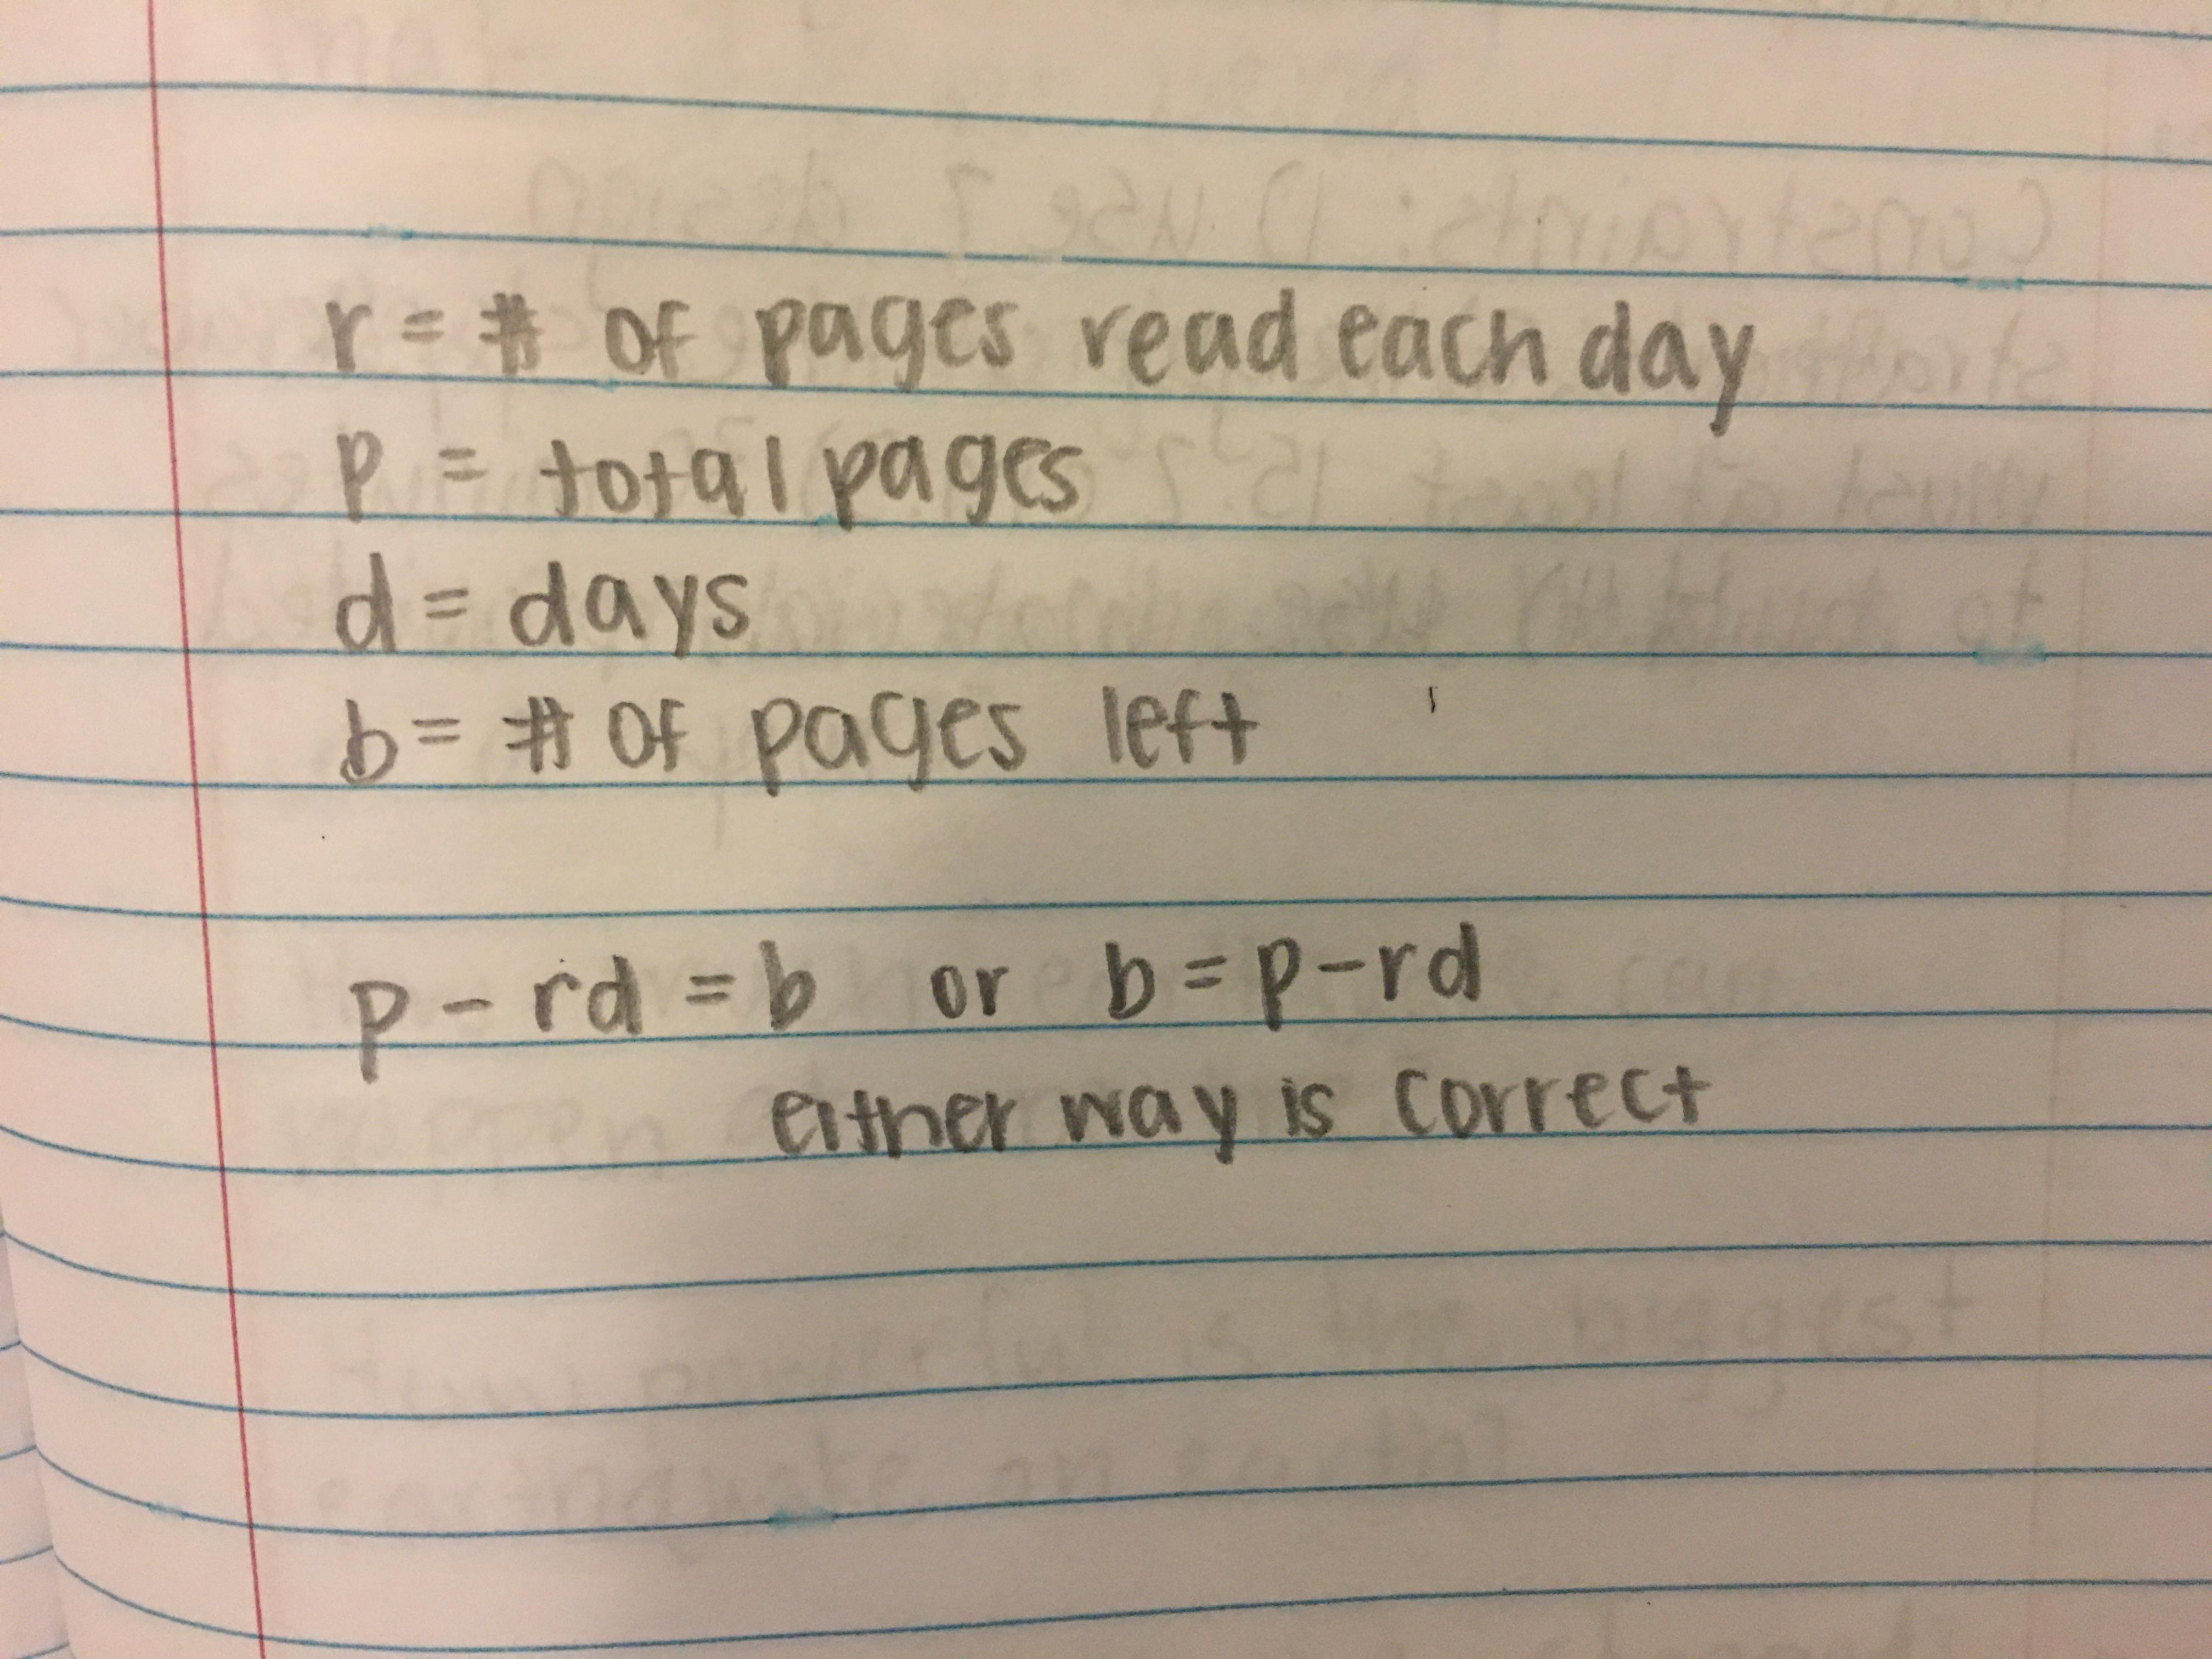 r = # of pages read each day
p = total pages
d = days
b = # of pages left
p - rd = b or b = p - rd
either way is correct